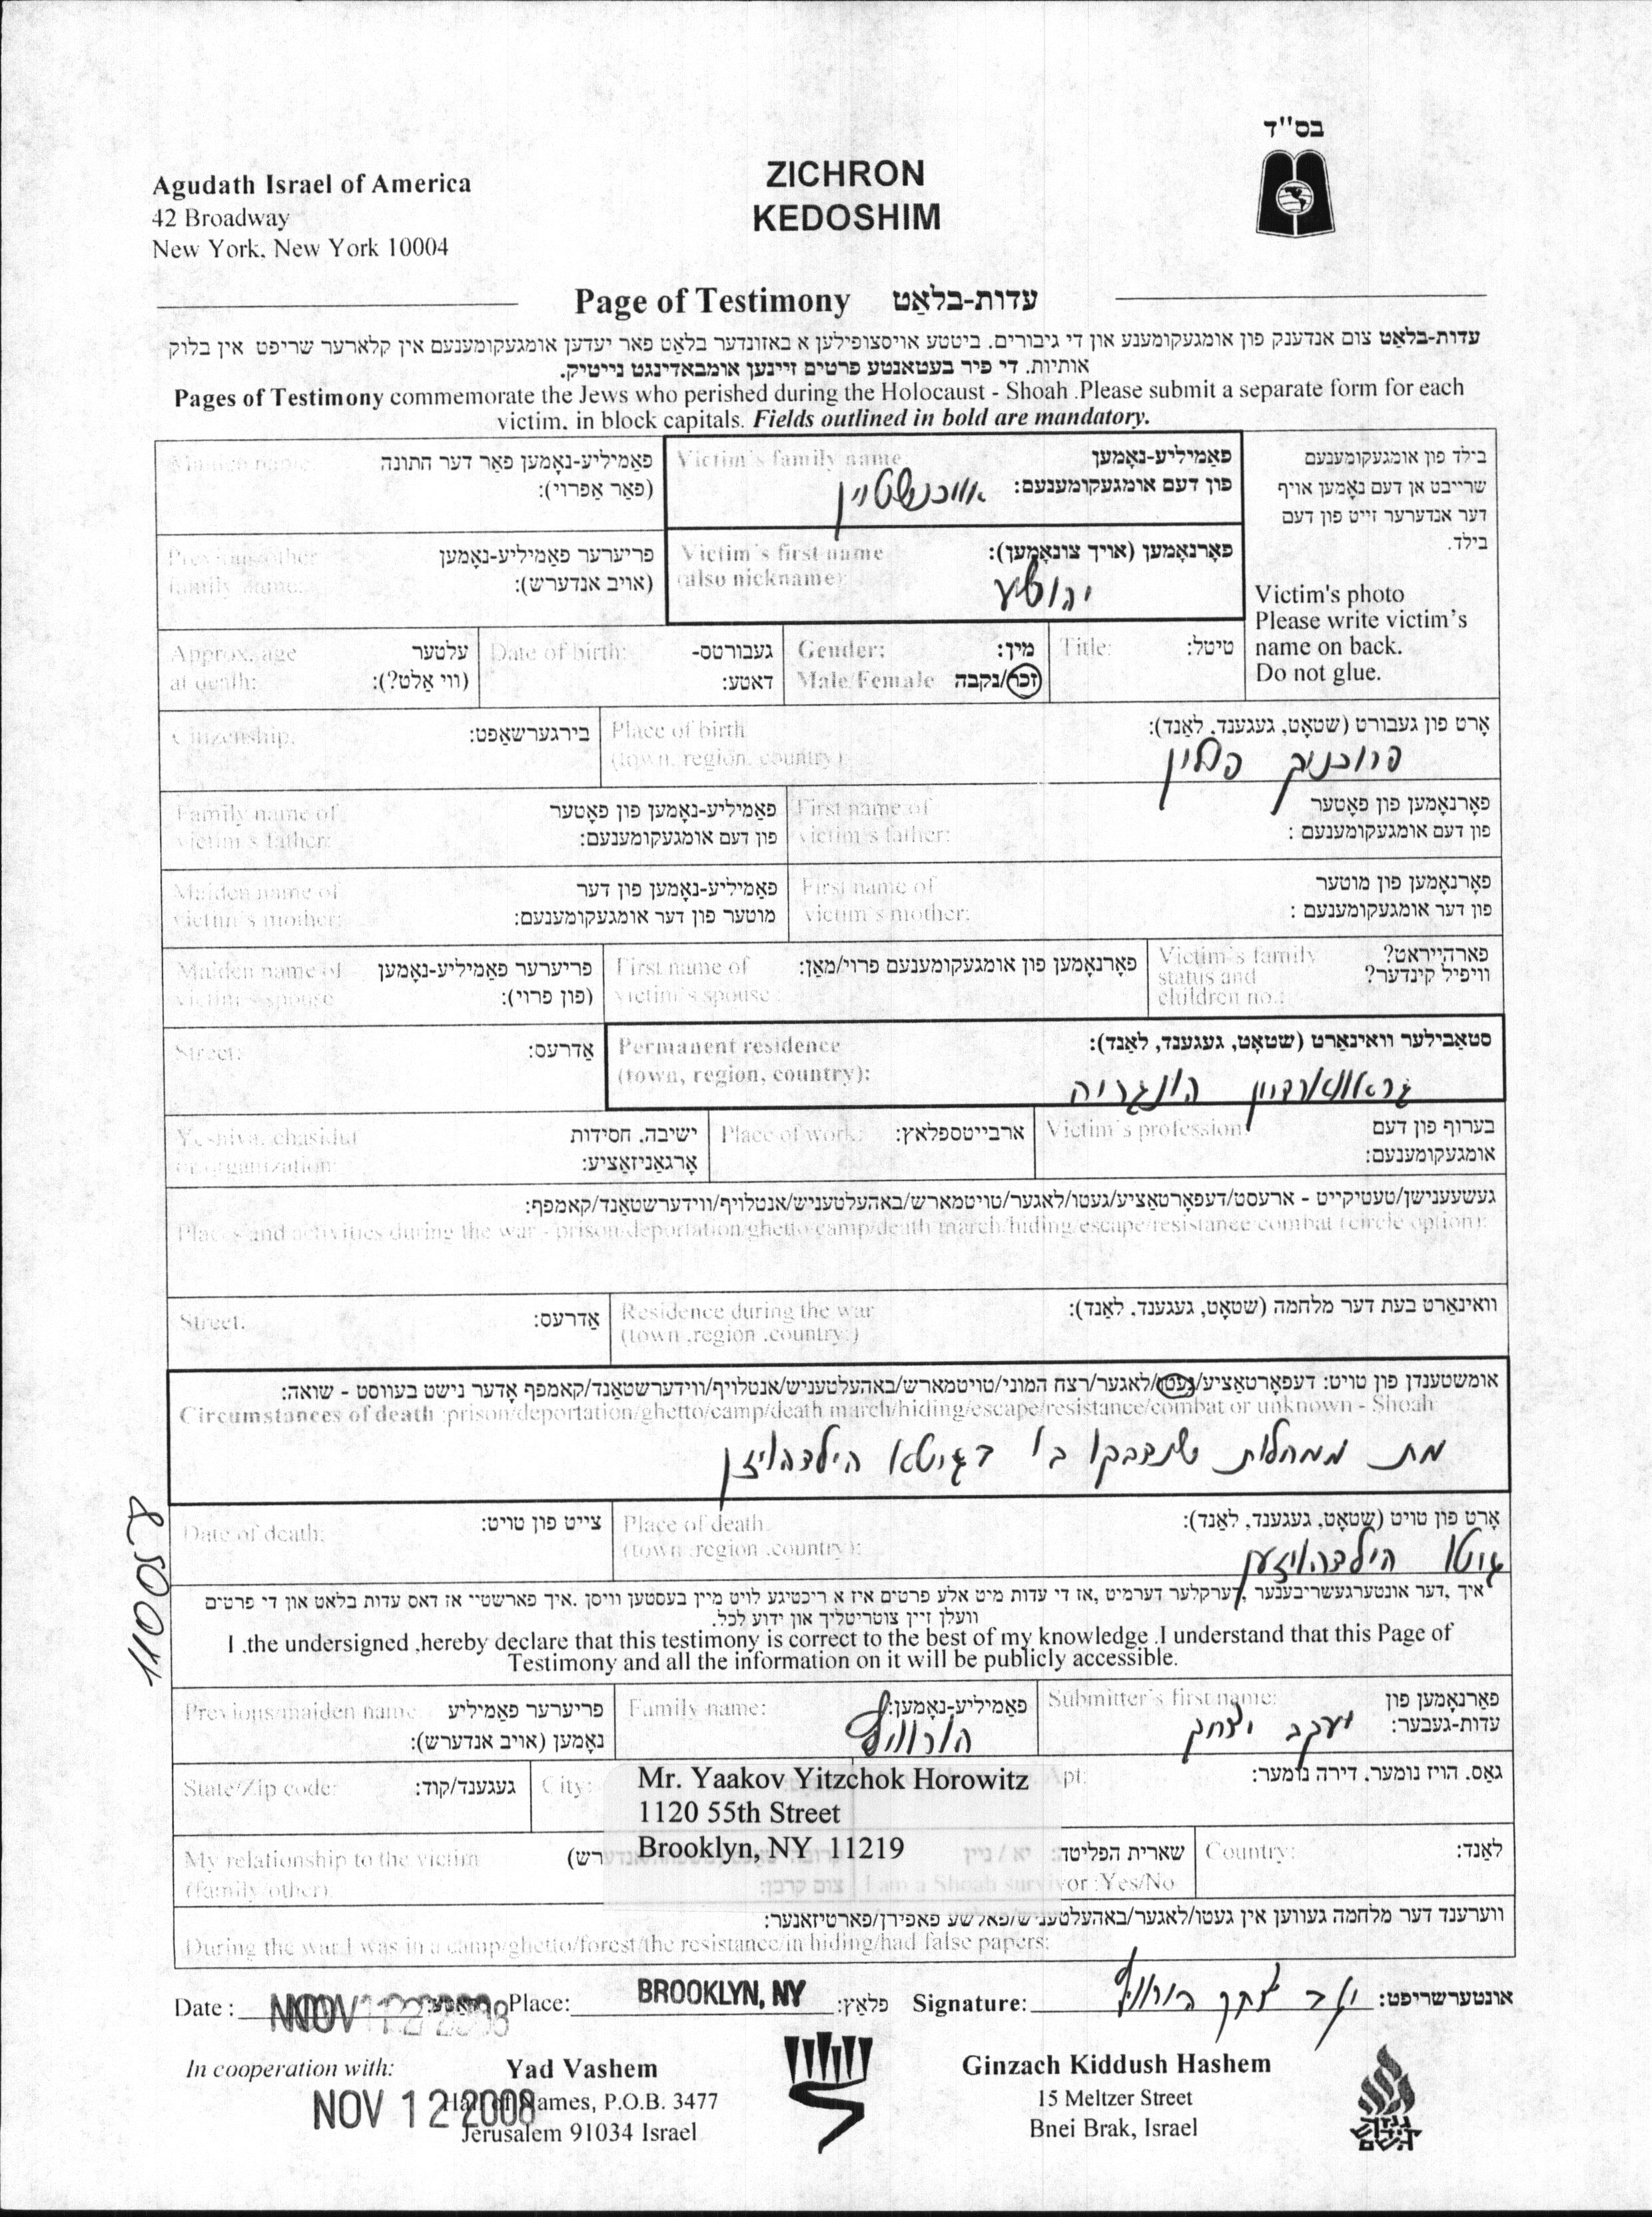 בס"ד
Agudath Israel of America
42 Broadway
New York, New York 10004
ZICHRON
KEDOSHIM
Page of Testimony עדות-בלאַט
עדות-בלאַט צום אנדענק פון אומגעקומענע און די גיבורים. ביטטע אויסצופילען א באזונדער בלאַט פאר יעדען אומגעקומענעם אין קלארער שריפט אין בלוק
אותיות. די פיר בעטאנטע פרטים זיינען אומבאדינגט נייטיק.
Pages of Testimony commemorate the Jews who perished during the Holocaust - Shoah .Please submit a separate form for each
victim. in block capitals. Fields outlined in bold are mandatory.
בילד פון אומגעקומענעם
שרייבט אן דעם נאָמען אויף
דער אנדערער זייט פון דעם
בילד.
Victim's photo
Please write victim's
name on back.
Do not glue.
Victim's family name פאַמיליע-נאָמען
פון דעם אומגעקומענעם:
Maiden name פאַמיליע-נאָמען פאַר דער חתונה
(פאַר אַפרוי):
Victim's first name פאָרנאָמען (אויך צונאָמען):
(also nickname):
יהושע
Previous/other פריערער פאַמיליע-נאָמען
family name: (אויב אנדערש):
Title: טיטל:
Gender: מין:
Male/Female זכר/נקבה
Date of birth: געבורטס-
דאטע:
Approx. age עלטער
at death: (ווי אַלט?):
Place of birth אָרט פון געבורט (שטאָט, געגענד, לאַנד):
(town, region, country)
פרוכניק פולין
Citizenship: בירגערשאַפט:
First name of פאָרנאָמען פון פאָטער
victim's father: פון דעם אומגעקומענעם :
Family name of פאַמיליע-נאָמען פון פאָטער
victim's father: פון דעם אומגעקומענעם:
First name of פאָרנאָמען פון מוטער
victim's mother: פון דער אומגעקומענעם :
Maiden name of פאַמיליע-נאָמען פון דער
victim's mother: מוטער פון דער אומגעקומענעם:
Victim's family פארהייראט?
status and וויפיל קינדער?
children no.:
First name of פאָרנאָמען פון אומגעקומענעם פרוי/מאַן:
victim's spouse :
Maiden name of פריערער פאַמיליע-נאָמען
victim's spouse (פון פרוי):
Permanent residence סטאַבילער וואינאָרט (שטאָט, געגענד, לאַנד):
(town, region, country):
גראסווארדיין הונגריה
Street: אַדרעס:
Victim's profession: בערוף פון דעם
אומגעקומענעם:
Place of work: ארבייטספלאץ:
Yeshiva, chasidut ישיבה, חסידות
or organization: אָרגאַניזאַציע:
געשעענישן/טעטיקייט - ארעסט/דעפאָרטאַציע/געטו/לאגער/טויטמארש/באהעלטעניש/אנטלויף/ווידערשטאַנד/קאמפף:
Places and activities during the war - prison/deportation/ghetto/camp/death march/hiding/escape/resistance/combat (circle option):
Residence during the war וואינאָרט בעת דער מלחמה (שטאָט, געגענד, לאַנד):
(town ,region ,country:)
Street: אַדרעס:
אומשטענדן פון טויט: דעפאָרטאַציע/געטו/לאגער/רצח המוני/טויטמארש/באהעלטעניש/אנטלויף/ווידערשטאַנד/קאמפף אָדער נישט בעוווסט - שואה:
Circumstances of death :prison/deportation/ghetto/camp/death march/hiding/escape/resistance/combat or unknown - Shoah
מת ממחלות שנדבקו בו בגעטא הילדהויזן
Place of death אָרט פון טויט (שטאָט, געגענד, לאַנד):
(town ,region ,country):
געטו הילדהויזען
Date of death: צייט פון טויט:
110058
איך ,דער אונטערגעשריבענער ,דערקלער דערמיט ,אז די עדות מיט אלע פרטים איז א ריכטיגע לויט מיין בעסטען וויסן .איך פארשטיי אז דאס עדות בלאט און די פרטים
וועלן זיין צוטריטליך און ידוע לכל.
I ,the undersigned ,hereby declare that this testimony is correct to the best of my knowledge .I understand that this Page of
Testimony and all the information on it will be publicly accessible.
Submitter's first name: פאָרנאָמען פון
עדות-געבער:
יעקב יצחק
Family name: פאַמיליע-נאָמען:
הורוויץ
Previous/maiden name: פריערער פאַמיליע
נאָמען (אויב אנדערש):
גאַס. הויז נומער. דירה נומער:
Apt:
Mr. Yaakov Yitzchok Horowitz
1120 55th Street
Brooklyn, NY 11219
City:
State/Zip code: געגענד/קוד:
Country: לאַנד:
שארית הפליטה: יא / ניין
I am a Shoah survivor :Yes/No
My relationship to the victim
(family/other)
צום קרבן:
ווערענד דער מלחמה געווען אין געטו/לאגער/באהעלטעניש/פאלשע פאפירן/פארטיזאנער:
During the war I was in a camp/ghetto/forest/the resistance/in hiding/had false papers:
Date : NOV 12 2008 Place: BROOKLYN, NY פלאַץ: Signature: יעקב יצחק הורוויץ אונטערשריפט:
In cooperation with: Yad Vashem
Hall of Names, P.O.B. 3477
Jerusalem 91034 Israel
NOV 12 2008
Ginzach Kiddush Hashem
15 Meltzer Street
Bnei Brak, Israel
גנזך
קידוש
השם